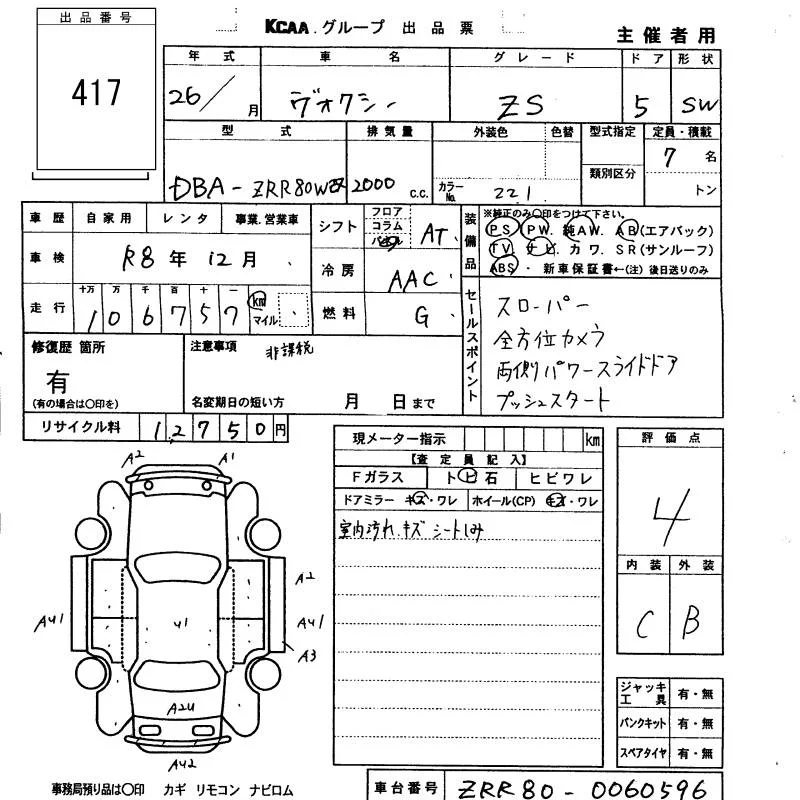 出品番号
417
KCAA.グループ 出品票
主催者用
年式 車名 グレード ドア 形状
26/ 月 ヴォクシー ZS 5 SW
型式 排気量 外装色 色替 型式指定 定員・積載
類別区分
DBA-ZRR80W 2000 c.c. カラーNo. 221 7 名
トン
車歴 自家用 レンタ 事業.営業車
車検 R8 年 12 月
走行 十万 万 千 百 十 一
1 0 6 7 5 7 km マイル
シフト フロア コラム AT
冷房 AAC
燃料 G
装備品
※純正のみ〇印をつけて下さい。
PS. PW. 純AW. AB(エアバック)
TV. ナビ. カワ. SR(サンルーフ)
ABS. 新車保証書←(注) 後日送りのみ
セールスポイント
スローパー
全方位カメラ
両側パワースライドドア
プッシュスタート
修復歴 箇所
有
(有の場合は〇印を)
注意事項 非課税
名変期日の短い方 月 日まで
リサイクル料 12750円
現メーター指示 km
【査定員記入】
Fガラス ト ビ 石 ヒビワレ
ドアミラー キズ・ワレ ホイール(CP) キズ・ワレ
室内汚れ.キズ シートしみ
評価点
4
内装 外装
C B
A2 A1
A2
AU1 U1 AU1
A3
A2U
AU2
ジャッキ工具 有・無
パンクキット 有・無
スペアタイヤ 有・無
事務局預り品は〇印 カギ リモコン ナビロム
車台番号 ZRR80-0060596